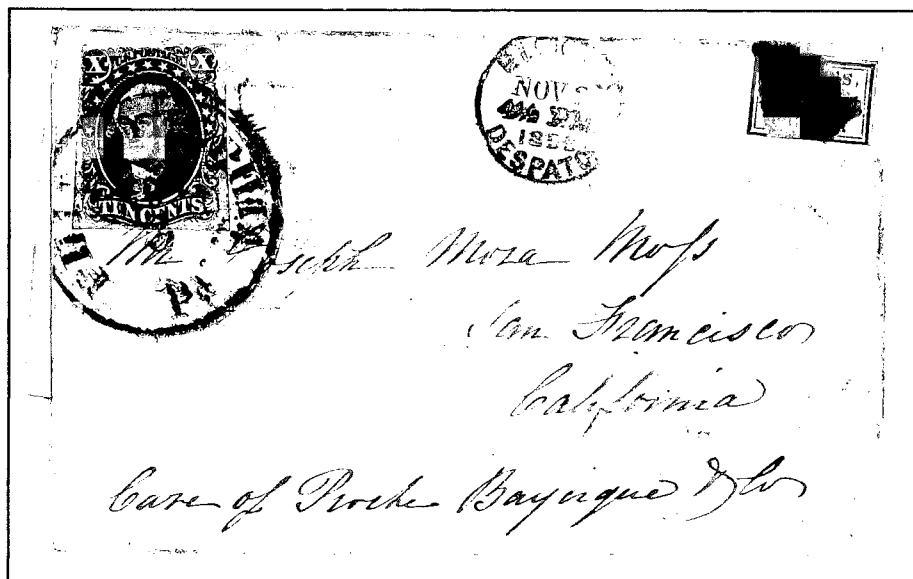 X X
TEN CENTS
NOV
PM
DESPATC
Mr. Joseph Mora Moss
San Francisco
California
Care of Pioche Bayerque & Co